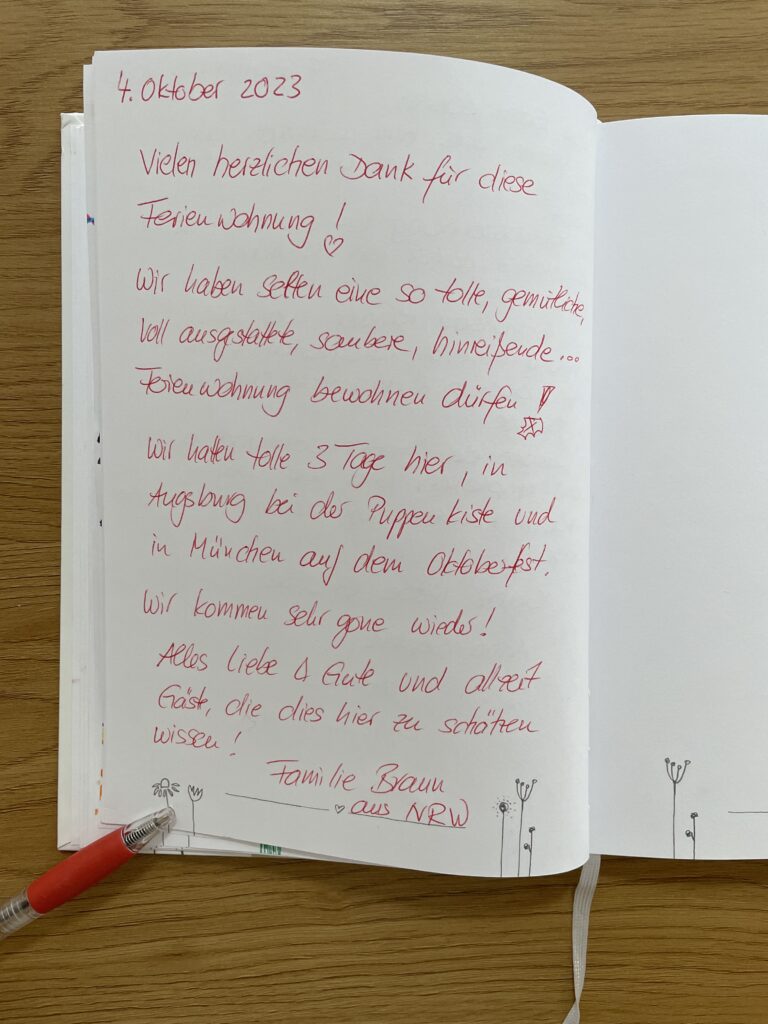 4. Oktober 2023
Vielen herzlichen Dank für diese
Ferienwohnung!
Wir haben selten eine so tolle, gemütliche,
voll ausgestattete, saubere, hinreißende...
Ferienwohnung bewohnen dürfen!
Wir hatten tolle 3 Tage hier, in
Augsburg bei der Puppenkiste und
in München auf dem Oktoberfest.
Wir kommen sehr gerne wieder!
Alles Liebe & Gute und allzeit
Gäste, die dies hier zu schätzen
wissen!
Familie Braun
aus NRW